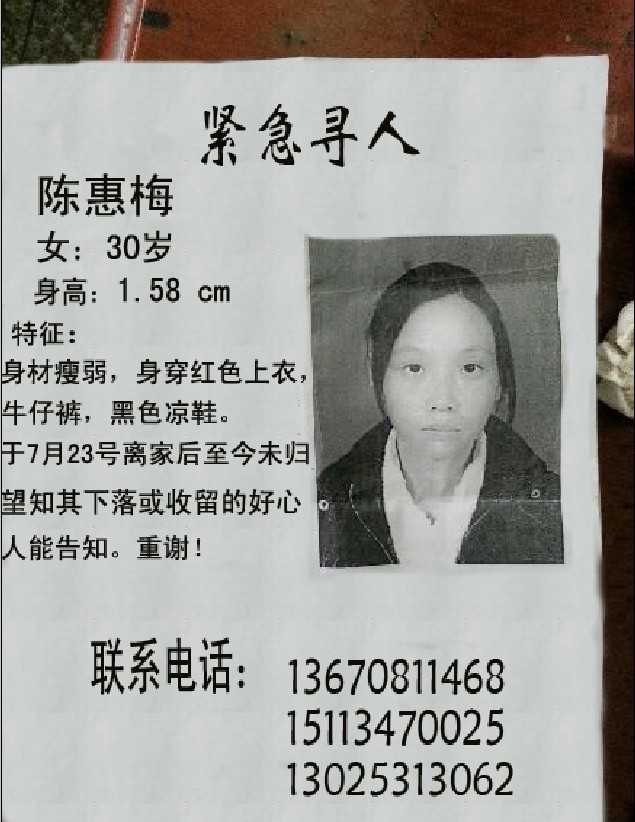 紧急寻人
陈惠梅
女：30岁
身高：1.58 cm
特征：
身材瘦弱，身穿红色上衣，
牛仔裤，黑色凉鞋。
于7月23号离家后至今未归
望知其下落或收留的好心
人能告知。重谢！
联系电话： 13670811468
15113470025
13025313062